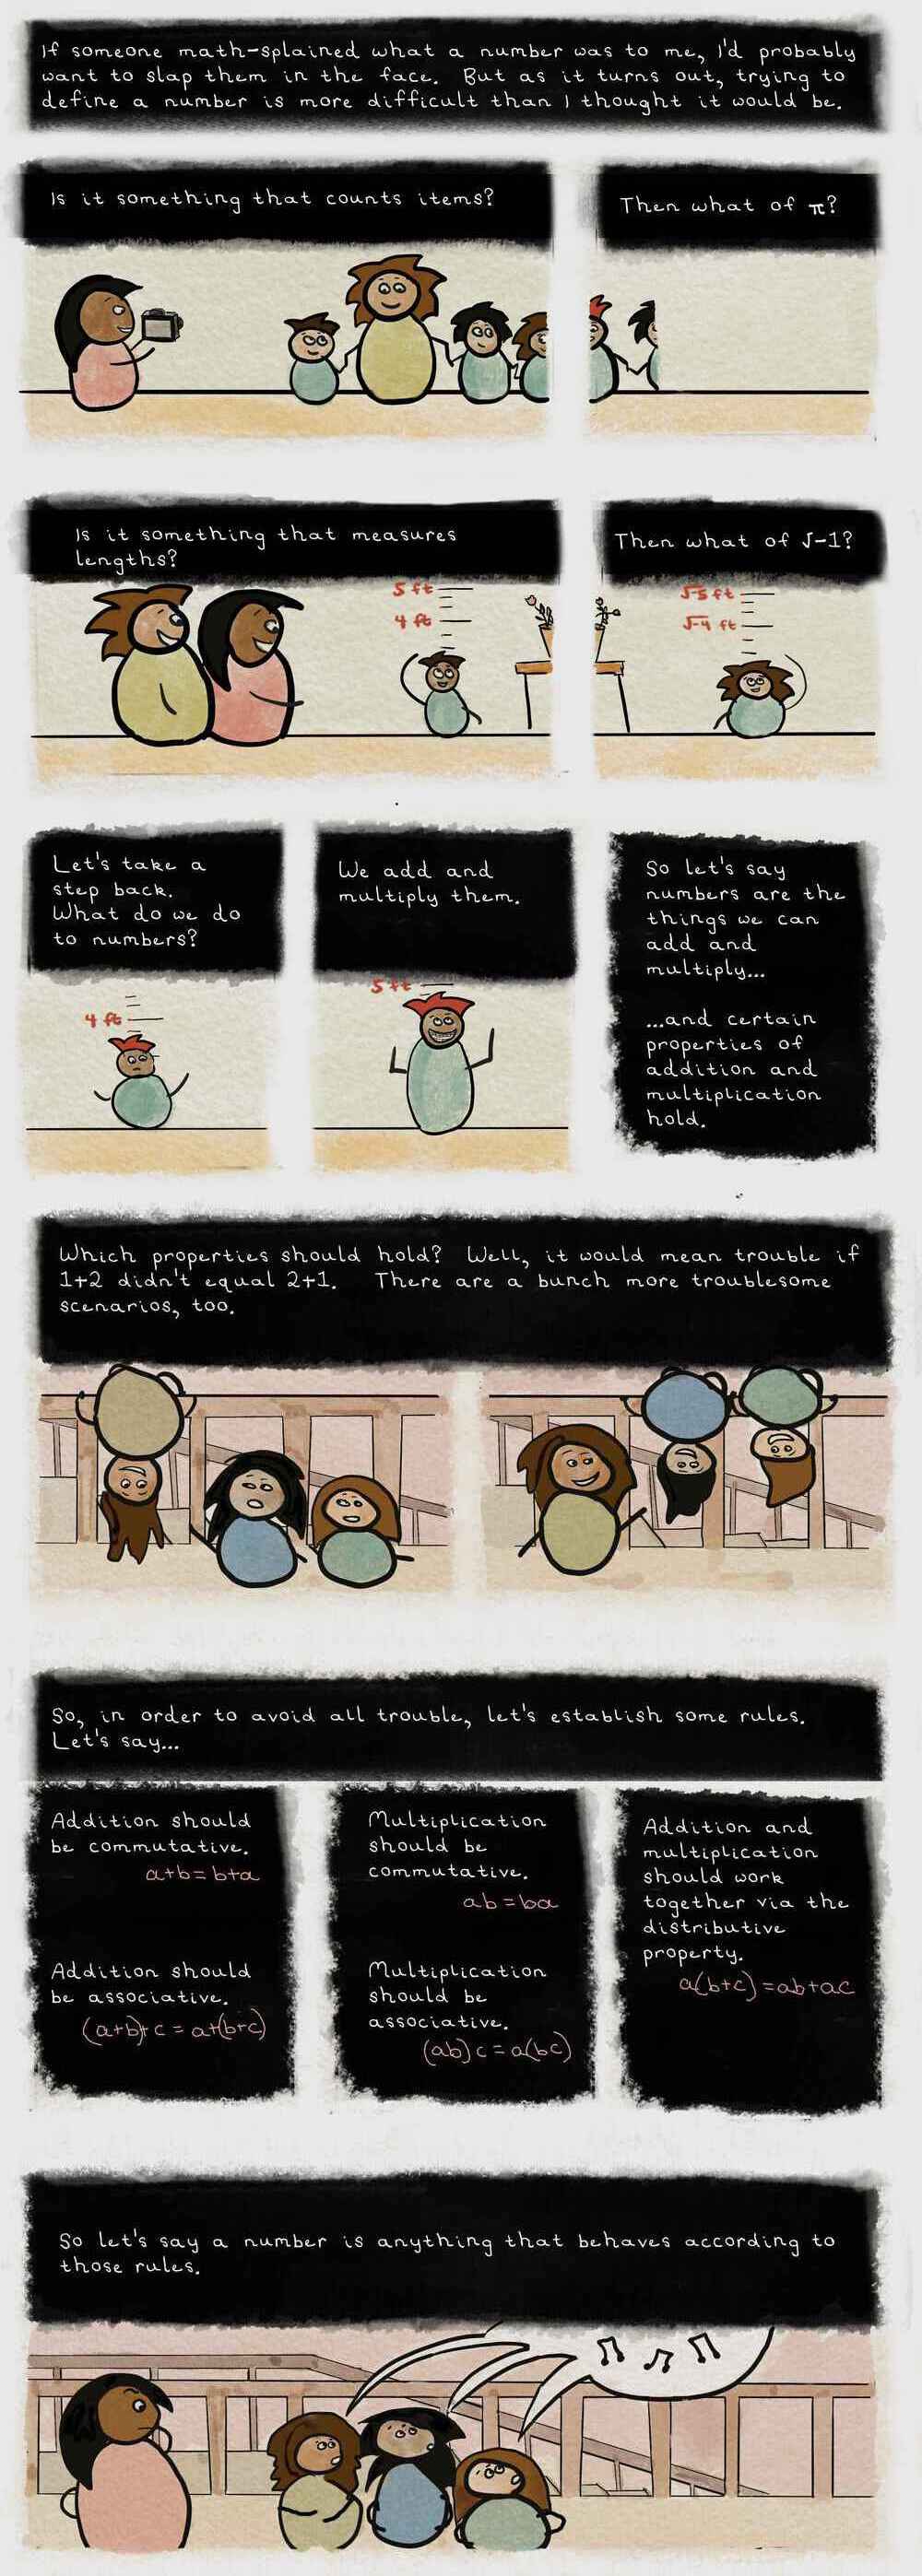 If someone math-splained what a number was to me, I'd probably
want to slap them in the face. But as it turns out, trying to
define a number is more difficult than I thought it would be.
Is it something that counts items?
Then what of π?
Is it something that measures
lengths?
5 ft
4 ft
Then what of √-1?
√-5 ft
√-4 ft
Let's take a
step back.
What do we do
to numbers?
4 ft
We add and
multiply them.
5 ft
So let's say
numbers are the
things we can
add and
multiply...
...and certain
properties of
addition and
multiplication
hold.
Which properties should hold? Well, it would mean trouble if
1+2 didn't equal 2+1. There are a bunch more troublesome
scenarios, too.
So, in order to avoid all trouble, let's establish some rules.
Let's say...
Addition should
be commutative.
a+b=b+a
Addition should
be associative.
(a+b)+c = a+(b+c)
Multiplication
should be
commutative.
ab=ba
Multiplication
should be
associative.
(ab)c=a(bc)
Addition and
multiplication
should work
together via the
distributive
property.
a(b+c)=ab+ac
So let's say a number is anything that behaves according to
those rules.